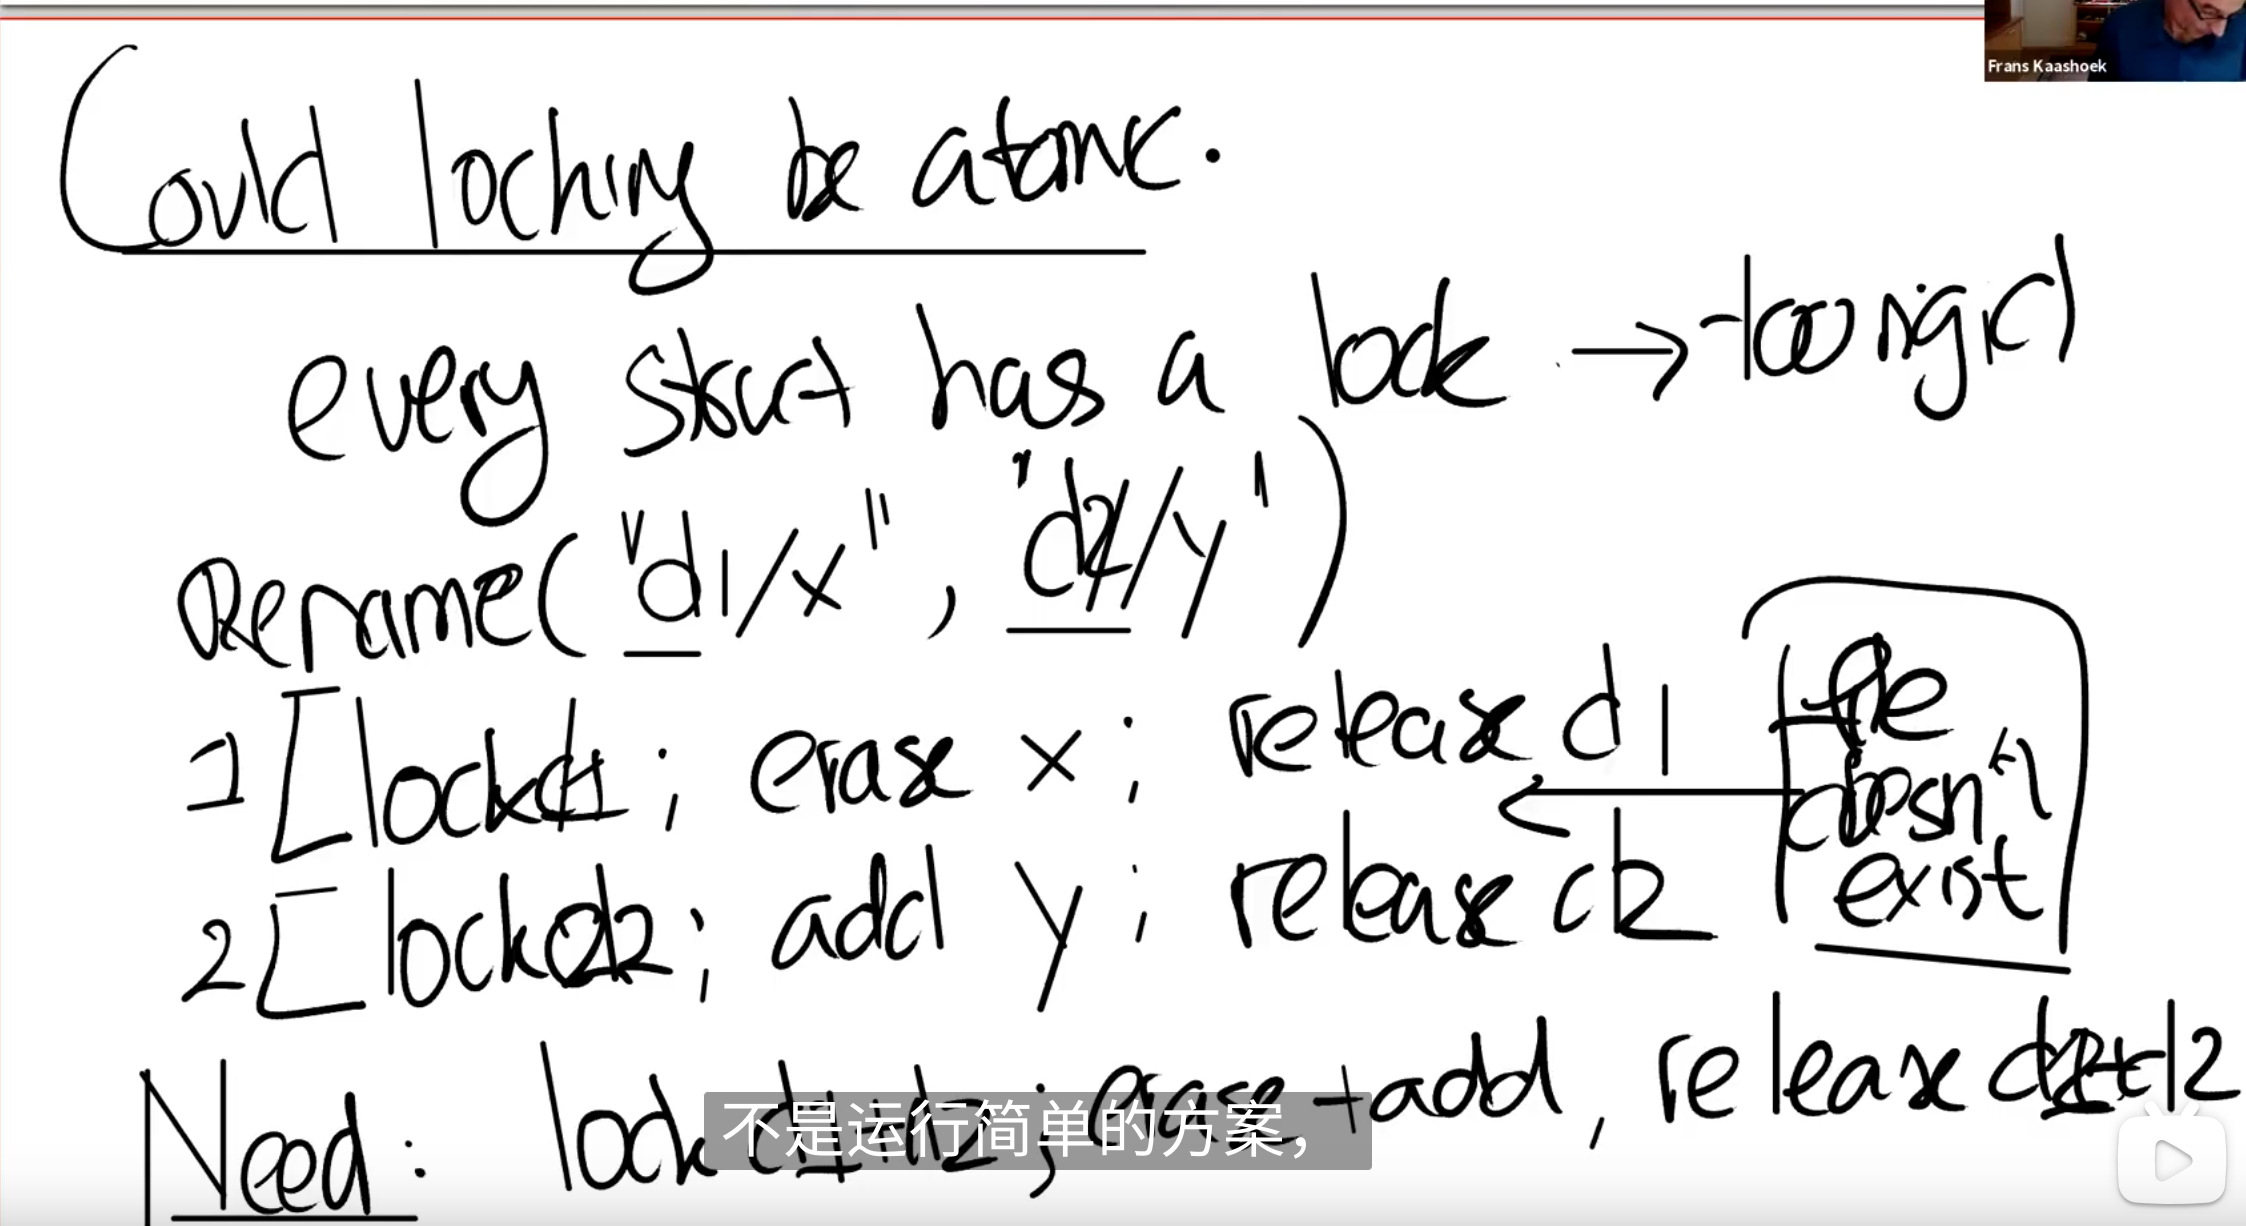 Frans Kaashoek
Could locking be atomic.
every struct has a lock → too rigid
Rename("d1/x", "d2/y")
1 [lock d1; erase x; release d1
file doesn't exist
2 [lock d2; add y; release d2
Need: lock d1+d2; erase + add, release d1+d2
不是运行简单的方案，